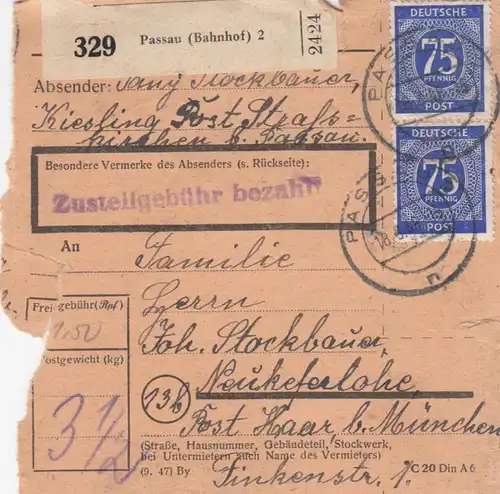 329
Passau (Bahnhof) 2
2424
DEUTSCHE
75
PFENNIG
POST
DEUTSCHE
75
PFENNIG
POST
PAS
PAS
n
Absender: Fany Stockbauer,
Kiesling Post Straß-
kirchen b. Passau.
Besondere Vermerke des Absenders (s. Rückseite):
Zustellgebühr bezahlt
An
Familie
Herrn
Joh. Stockbauer,
Neukeferlohe,
(13b) Post Haar b. München
Finkenstr. 1.
Freigebühr (Rpf)
1.50
Postgewicht (kg)
3 1/2
(Straße, Hausnummer, Gebäudeteil, Stockwerk,
bei Untermietern auch Name des Vermieters)
(9. 47) By
C 20 Din A 6